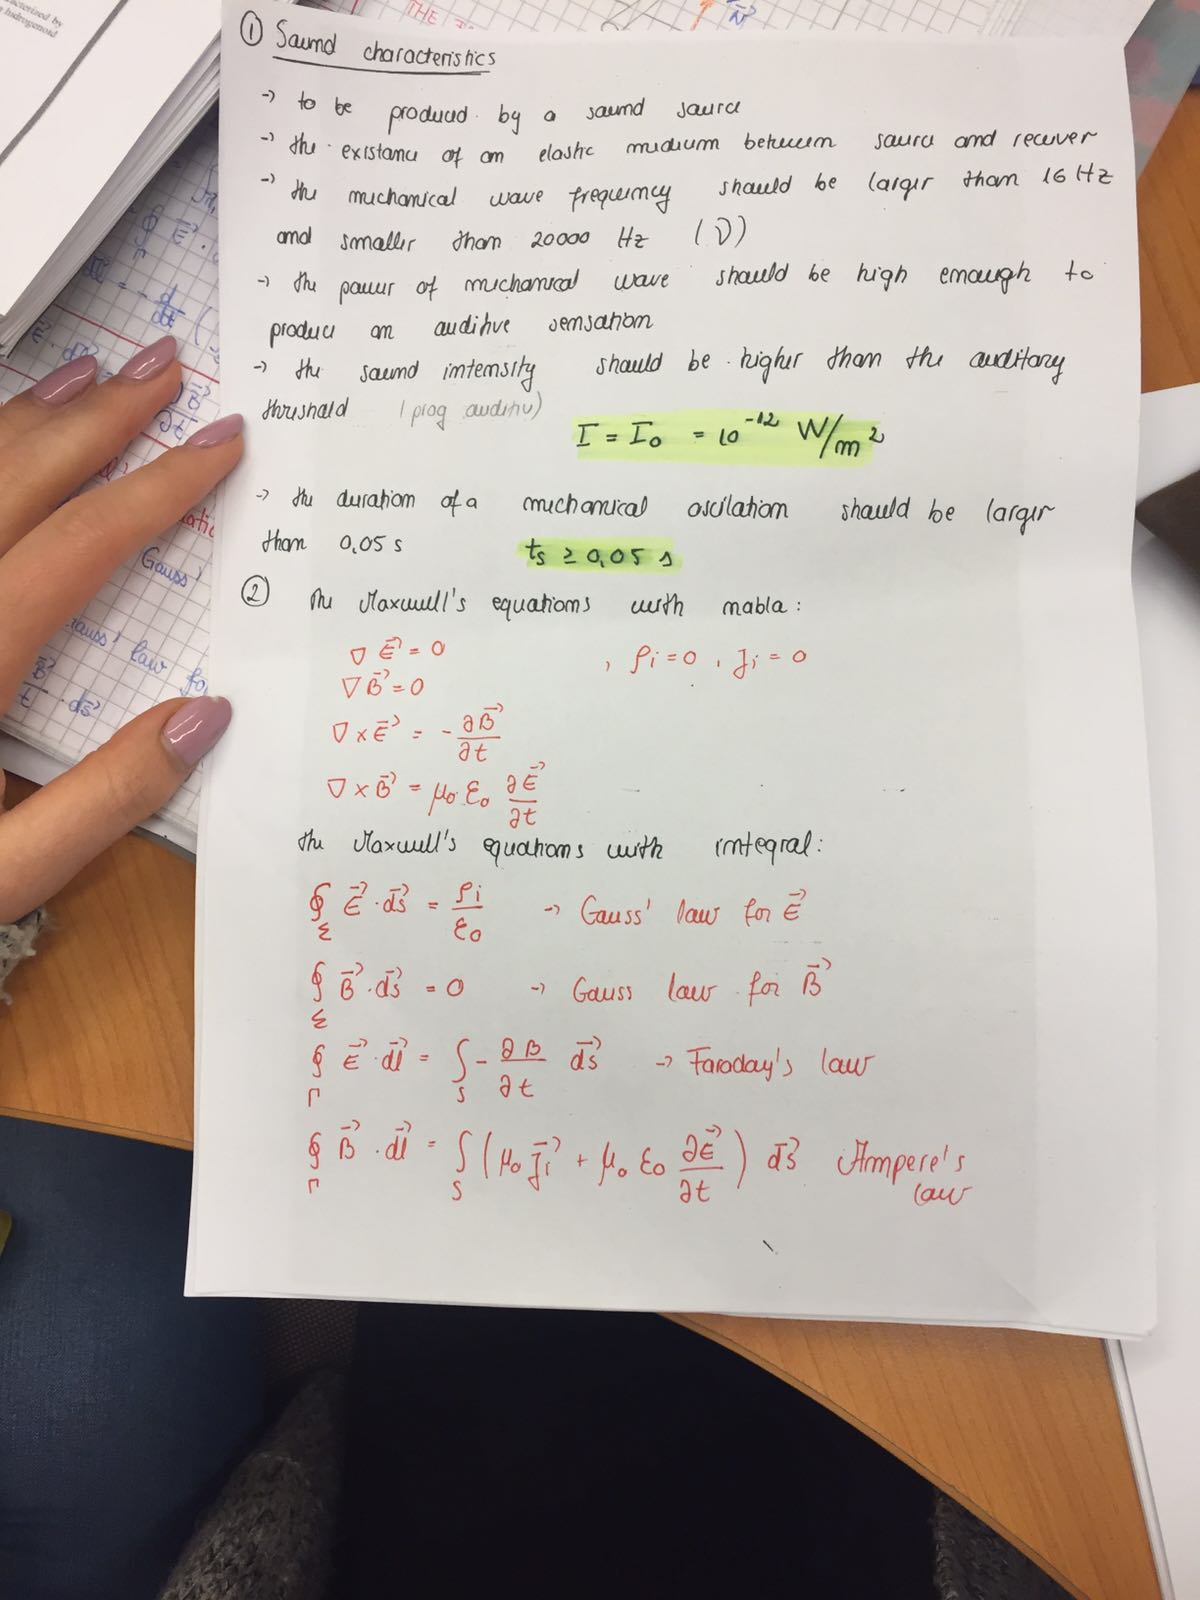 ① Sound characteristics
→ to be produced by a sound source
→ the existance of an elastic medium between source and receiver
→ the mechanical wave frequency should be larger than 16 Hz
and smaller than 20000 Hz (ν)
→ the power of mechanical wave should be high enough to
produce an auditive sensation
→ the sound intensity should be higher than the auditory
threshold (prag auditiv)
I = I₀ = 10⁻¹² W/m²
→ the duration of a mechanical oscilation should be larger
than 0,05 s
tₛ ≥ 0,05 s
② The Maxwell's equations with nabla:
∇ E⃗ = 0 , ρi = 0 , Ji = 0
∇ B⃗ = 0
∇ × E⃗ = - ∂B⃗/∂t
∇ × B⃗ = μ₀ ε₀ ∂E⃗/∂t
The Maxwell's equations with integral:
∮_Σ E⃗ · ds⃗ = ρi/ε₀ → Gauss' law for E⃗
∮_Σ B⃗ · ds⃗ = 0 → Gauss law for B⃗
∮_Γ E⃗ · dl⃗ = ∫_S - ∂B/∂t ds⃗ → Faraday's law
∮_Γ B⃗ · dl⃗ = ∫_S (μ₀ J⃗i + μ₀ ε₀ ∂E⃗/∂t) ds⃗ Ampere's
law
hydrogenoid
THE
N⃗
Gauss'
Gauss' law fo